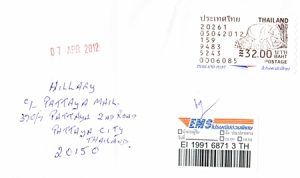 ประเทศไทย
20261
05042012
159
9483
5243
0006085
THAILAND
฿32.00
BAHT
POSTAGE
07 APR 2012
HILLARY
c/o PATTAYA MAIL.
PATTAYA 2ND ROAD
PATTAYA CITY
THAILAND.
20150
EMS
EI 1991 6871 3 TH